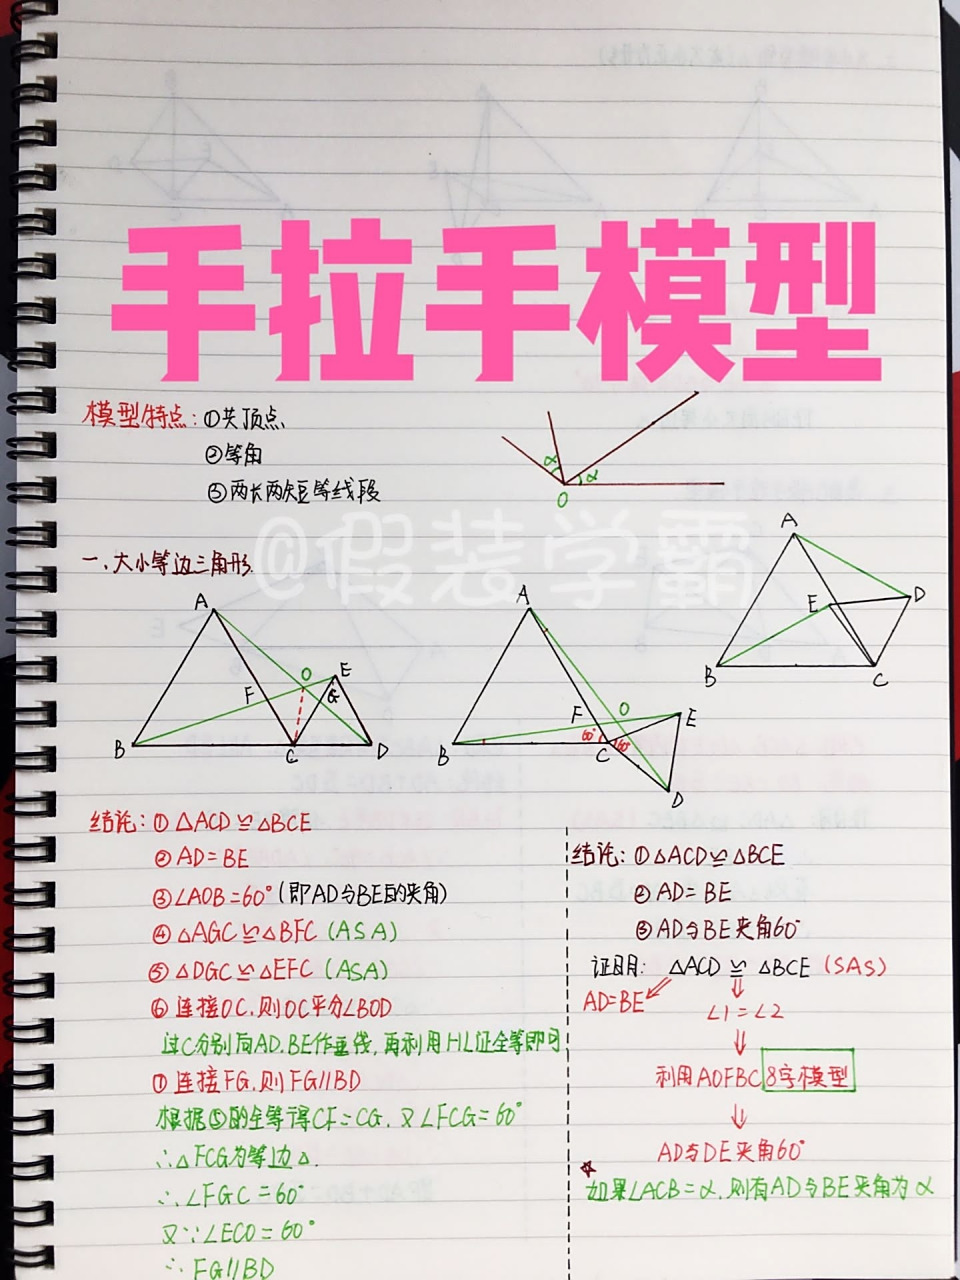 手拉手模型
模型特点:①共顶点
②等角
③两长两短等线段
α
α
O
@假装学霸
一、大小等边三角形
A
B
C
D
E
F
G
O
A
B
C
D
E
F
O
60°
60°
A
B
C
D
E
结论:①△ACD≌△BCE
②AD=BE
③∠AOB=60°(即AD与BE的夹角)
④△AGC≌△BFC(ASA)
⑤△DGC≌△EFC(ASA)
⑥连接OC,则OC平分∠BOD
过C分别向AD.BE作垂线,再利用HL证全等即可
⑦连接FG,则FG//BD
根据⑤的全等得CF=CG,又∠FCG=60°
∴△FCG为等边△.
∴∠FGC=60°
又∵∠ECD=60°
∴FG//BD
结论:①△ACD≌△BCE
②AD=BE
③AD与BE夹角60°
证明:△ACD≌△BCE(SAS)
AD=BE
∠1=∠2
利用AOFBC8字模型
AD与DE夹角60°
如果∠ACB=α,则有AD与BE夹角为α